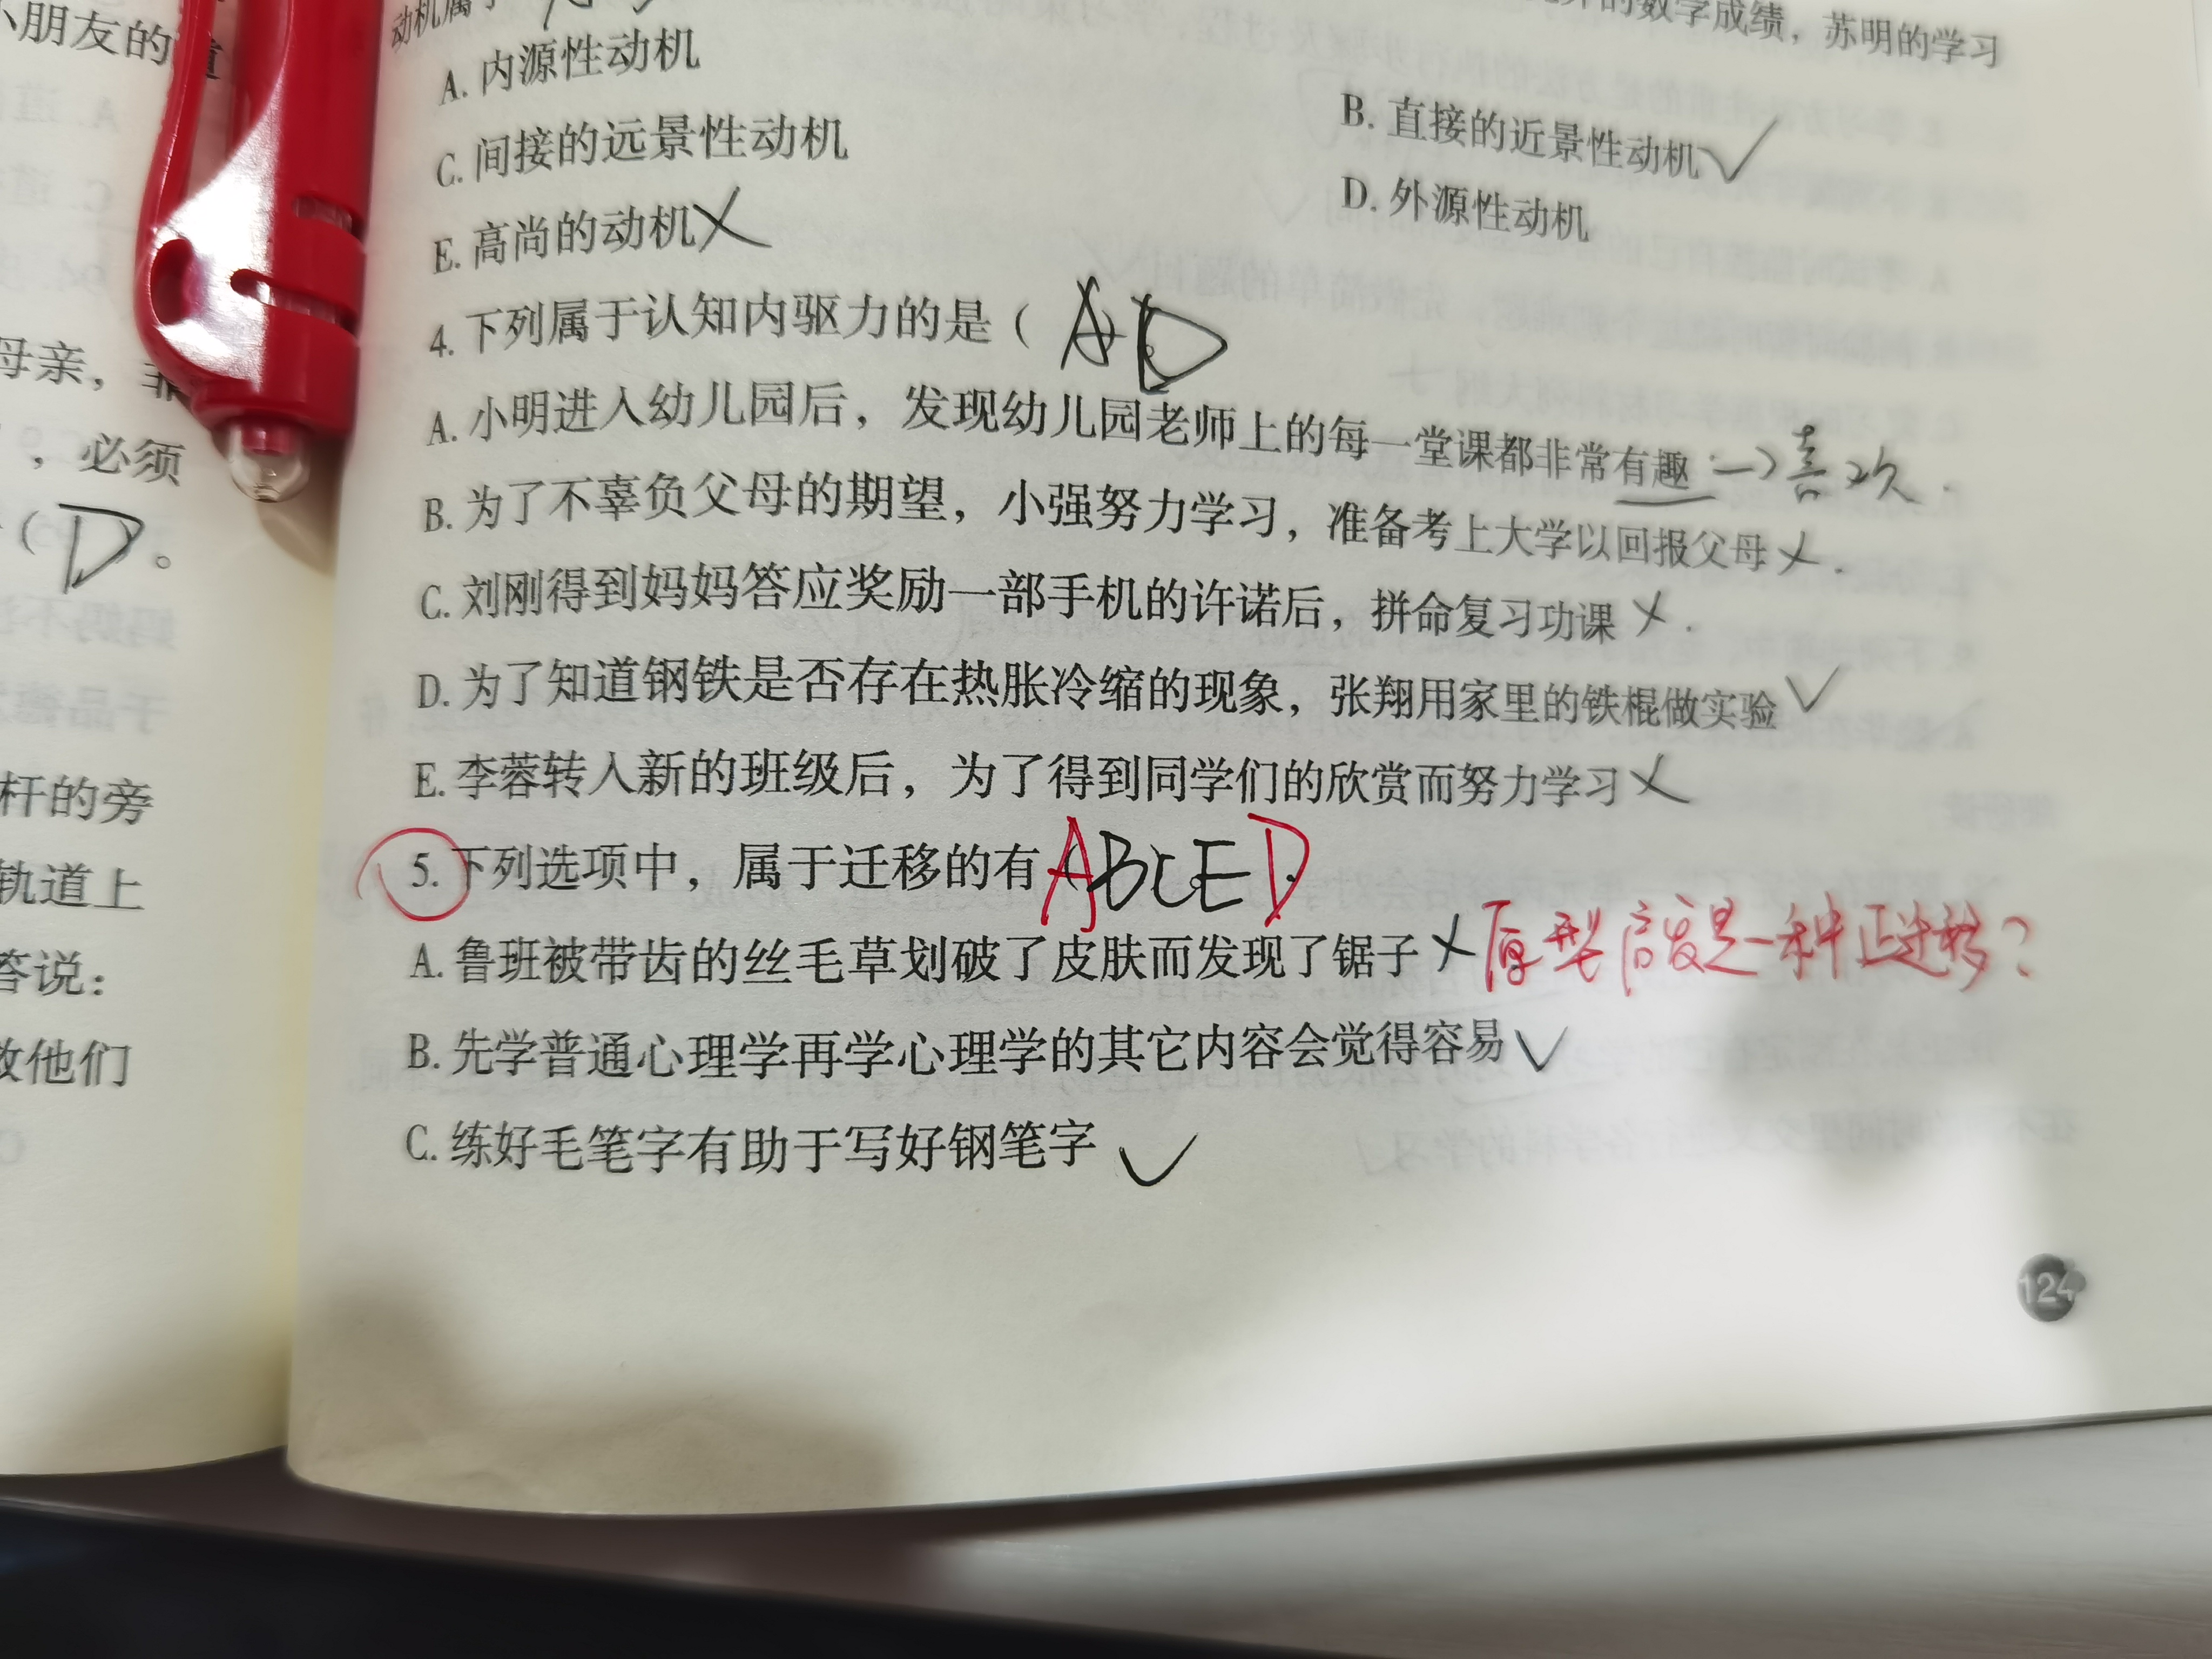 小朋友的
母亲，
，必须
（D。
杆的旁
轨道上
答说：
他们
动机属于
的数学成绩，苏明的学习
A. 内源性动机
B. 直接的近景性动机✓
C. 间接的远景性动机
D. 外源性动机
E. 高尚的动机✗
4. 下列属于认知内驱力的是（AD）。
A. 小明进入幼儿园后，发现幼儿园老师上的每一堂课都非常有趣→喜欢.
B. 为了不辜负父母的期望，小强努力学习，准备考上大学以回报父母✗.
C. 刘刚得到妈妈答应奖励一部手机的许诺后，拼命复习功课✗.
D. 为了知道钢铁是否存在热胀冷缩的现象，张翔用家里的铁棍做实验✓
E. 李蓉转入新的班级后，为了得到同学们的欣赏而努力学习✗
5. 下列选项中，属于迁移的有（ABCED）。
A. 鲁班被带齿的丝毛草划破了皮肤而发现了锯子✗原型启发是一种正迁移？
B. 先学普通心理学再学心理学的其它内容会觉得容易✓
C. 练好毛笔字有助于写好钢笔字✓
124